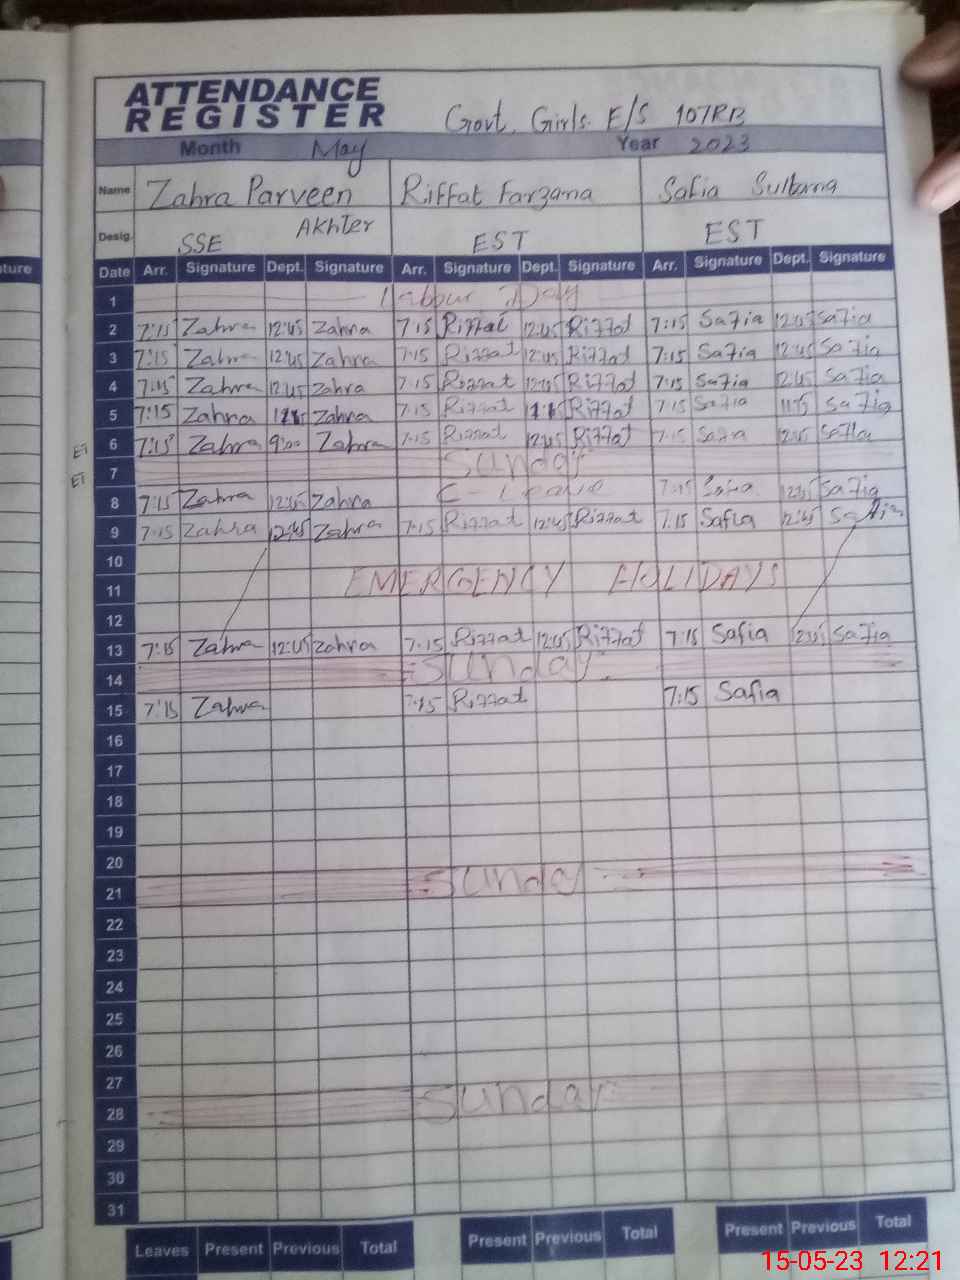 ATTENDANCE
REGISTER Govt. Girls. E/S 107RB
Month May Year 2023
Name Zahra Parveen Riffat Farzana Safia Sultana
Akhter
Desig. SSE EST EST
ture
Date Arr. Signature Dept. Signature Arr. Signature Dept. Signature Arr. Signature Dept. Signature
1 Labour Day
2 7:15 Zahra 12:45 Zahra 7:15 Riffat 12:45 Riffat 7:15 Safia 12:45 Safia
3 7:15 Zahra 12:45 Zahra 7:15 Riffat 12:45 Riffat 7:15 Safia 12:45 Safia
4 7:15 Zahra 12:45 Zahra 7:15 Riffat 12:45 Riffat 7:15 Safia 12:45 Safia
5 7:15 Zahra Zahra 7:15 Riffat Riffat 7:15 Safia Safia
6 7:15 Zahra 9:00 Zahra 7:15 Riffat 12:45 Riffat 7:15 Safia 12:45 Safia
7 Sunday
8 7:15 Zahra 12:45 Zahra C-Leave 7:15 Safia 12:45 Safia
9 7:15 Zahra 12:45 Zahra 7:15 Riffat 12:45 Riffat 7:15 Safia 12:45 Safia
10
11 EMERGENCY HOLIDAYS
12
13 7:15 Zahra 12:45 Zahra 7:15 Riffat 12:45 Riffat 7:15 Safia 12:45 Safia
14 Sunday
15 7:15 Zahra 7:15 Riffat 7:15 Safia
16
17
18
19
20
21 Sunday
22
23
24
25
26
27
28 Sunday
29
30
31
Leaves Present Previous Total Present Previous Total Present Previous Total
15-05-23 12:21